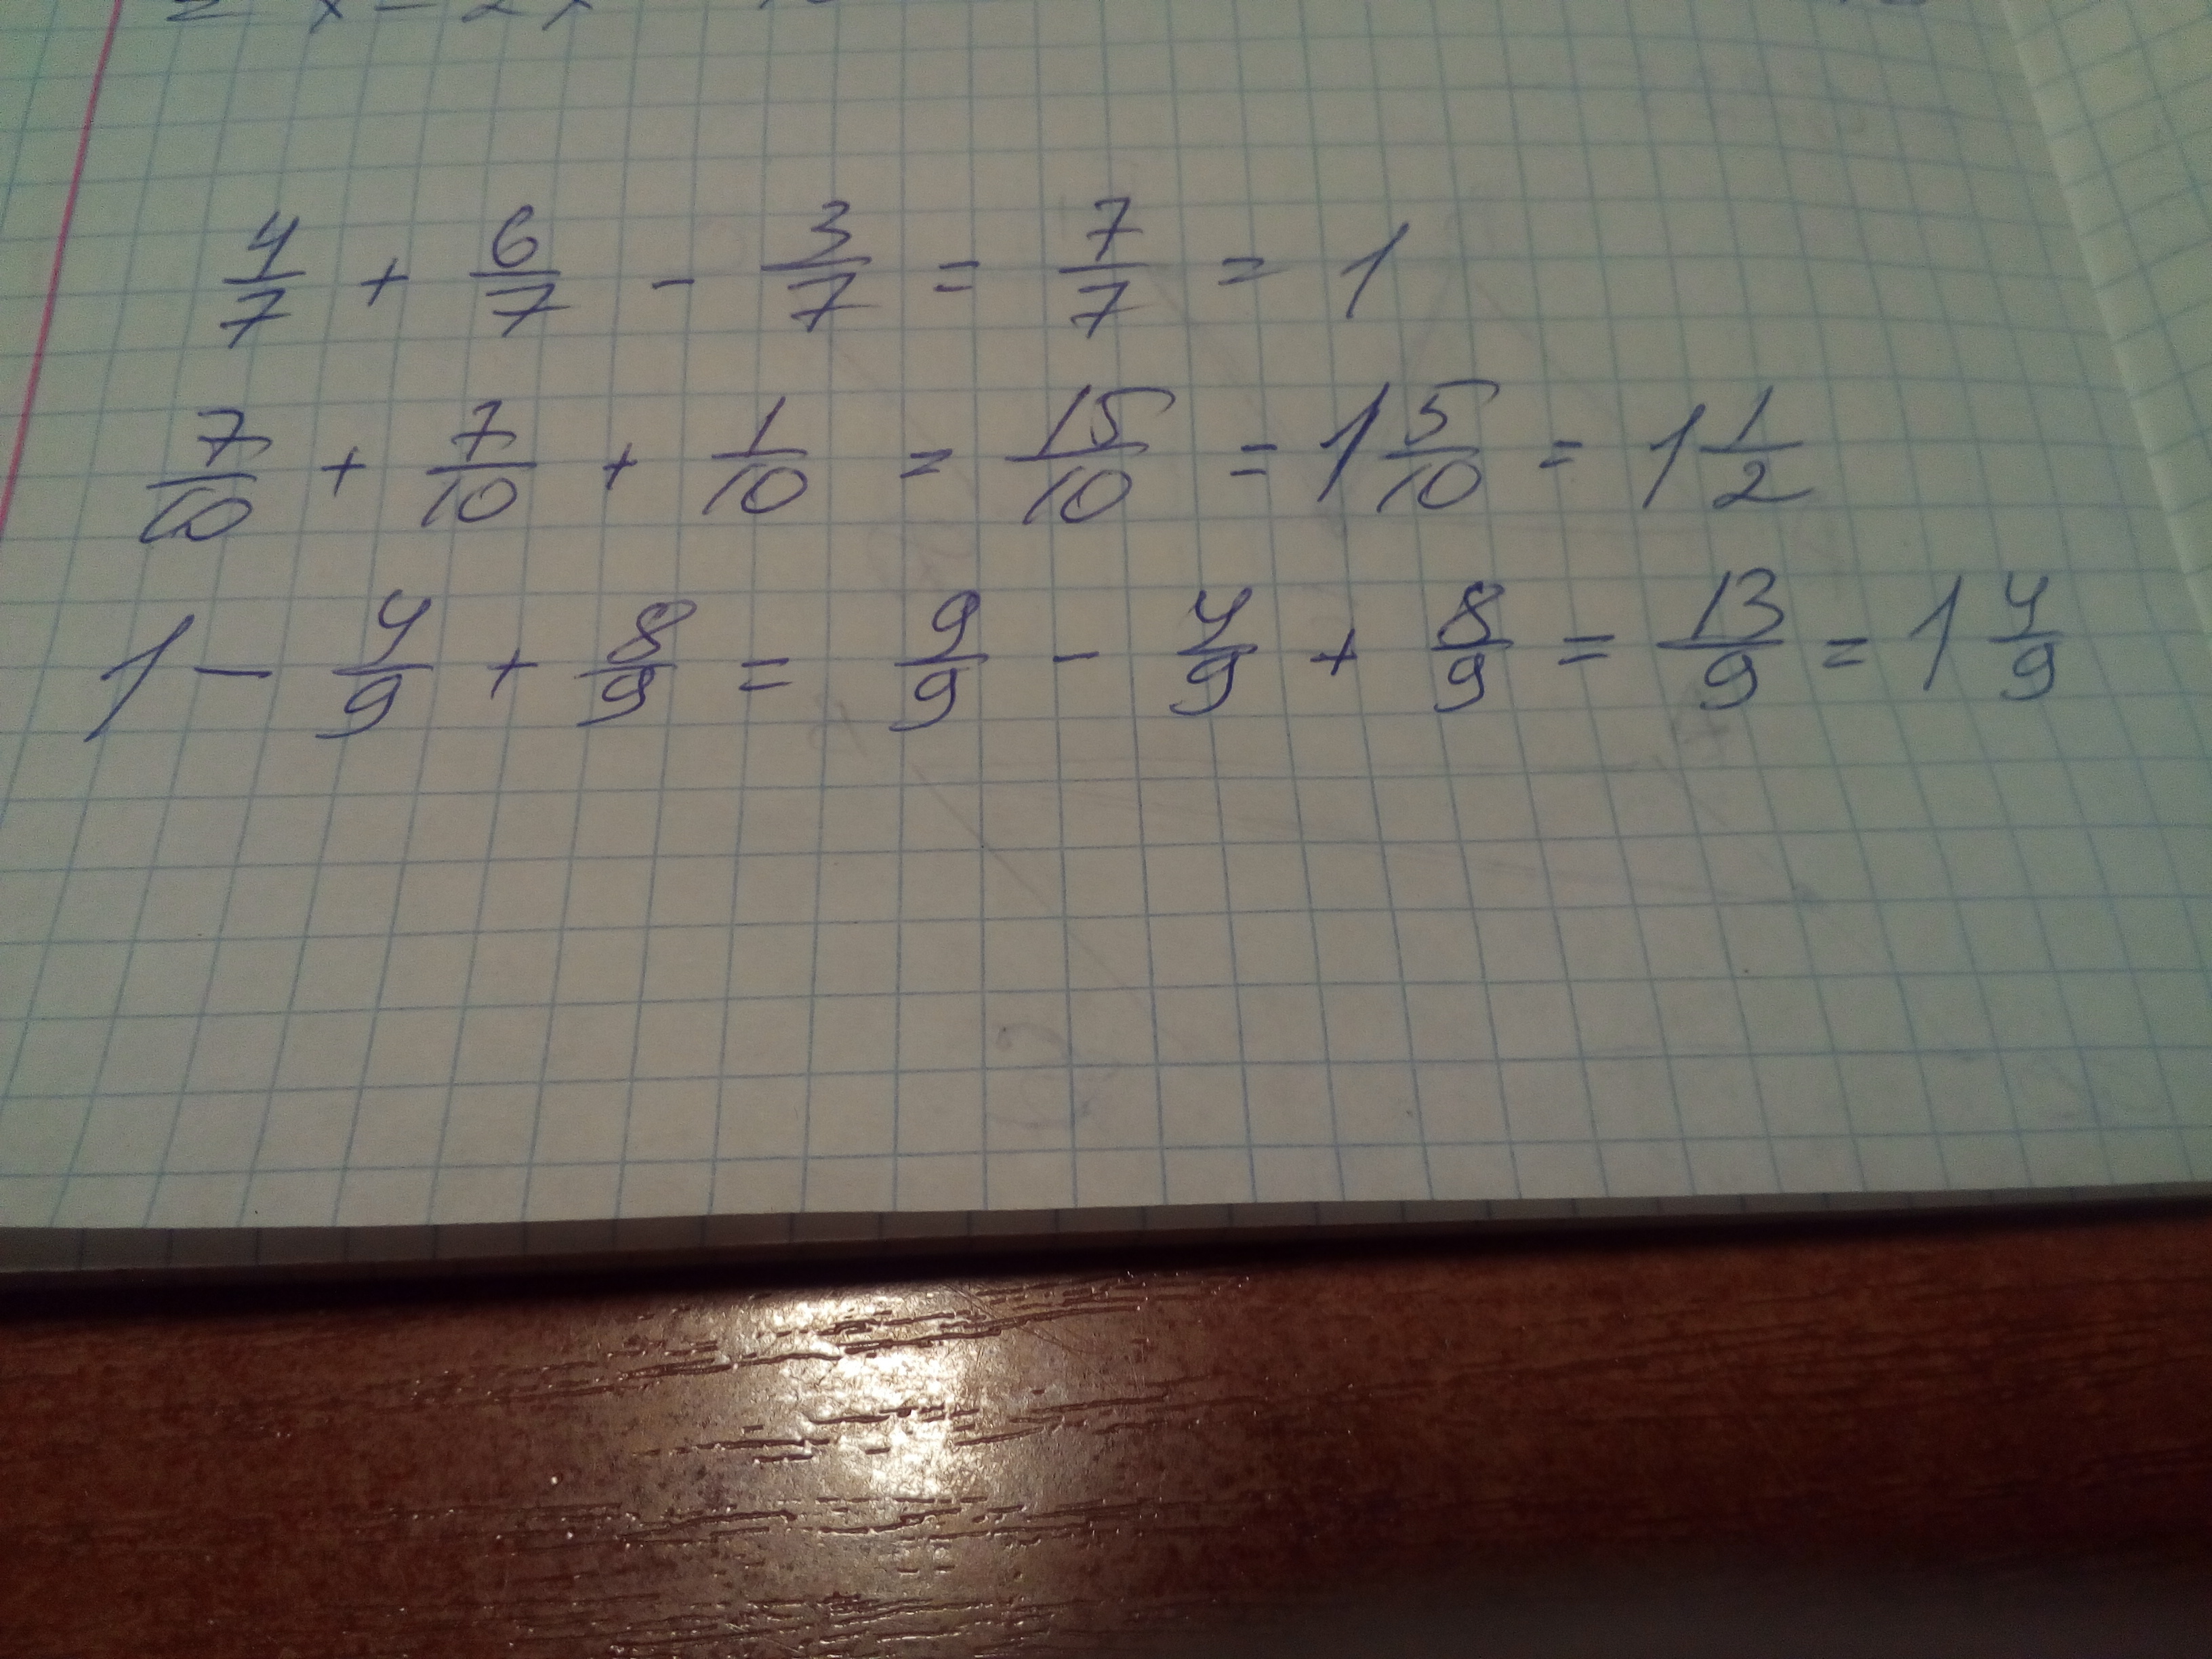 4/7 + 6/7 - 3/7 = 7/7 = 1
7/10 + 7/10 + 1/10 = 15/10 = 1 5/10 = 1 1/2
1 - 4/9 + 8/9 = 9/9 - 4/9 + 8/9 = 13/9 = 1 4/9